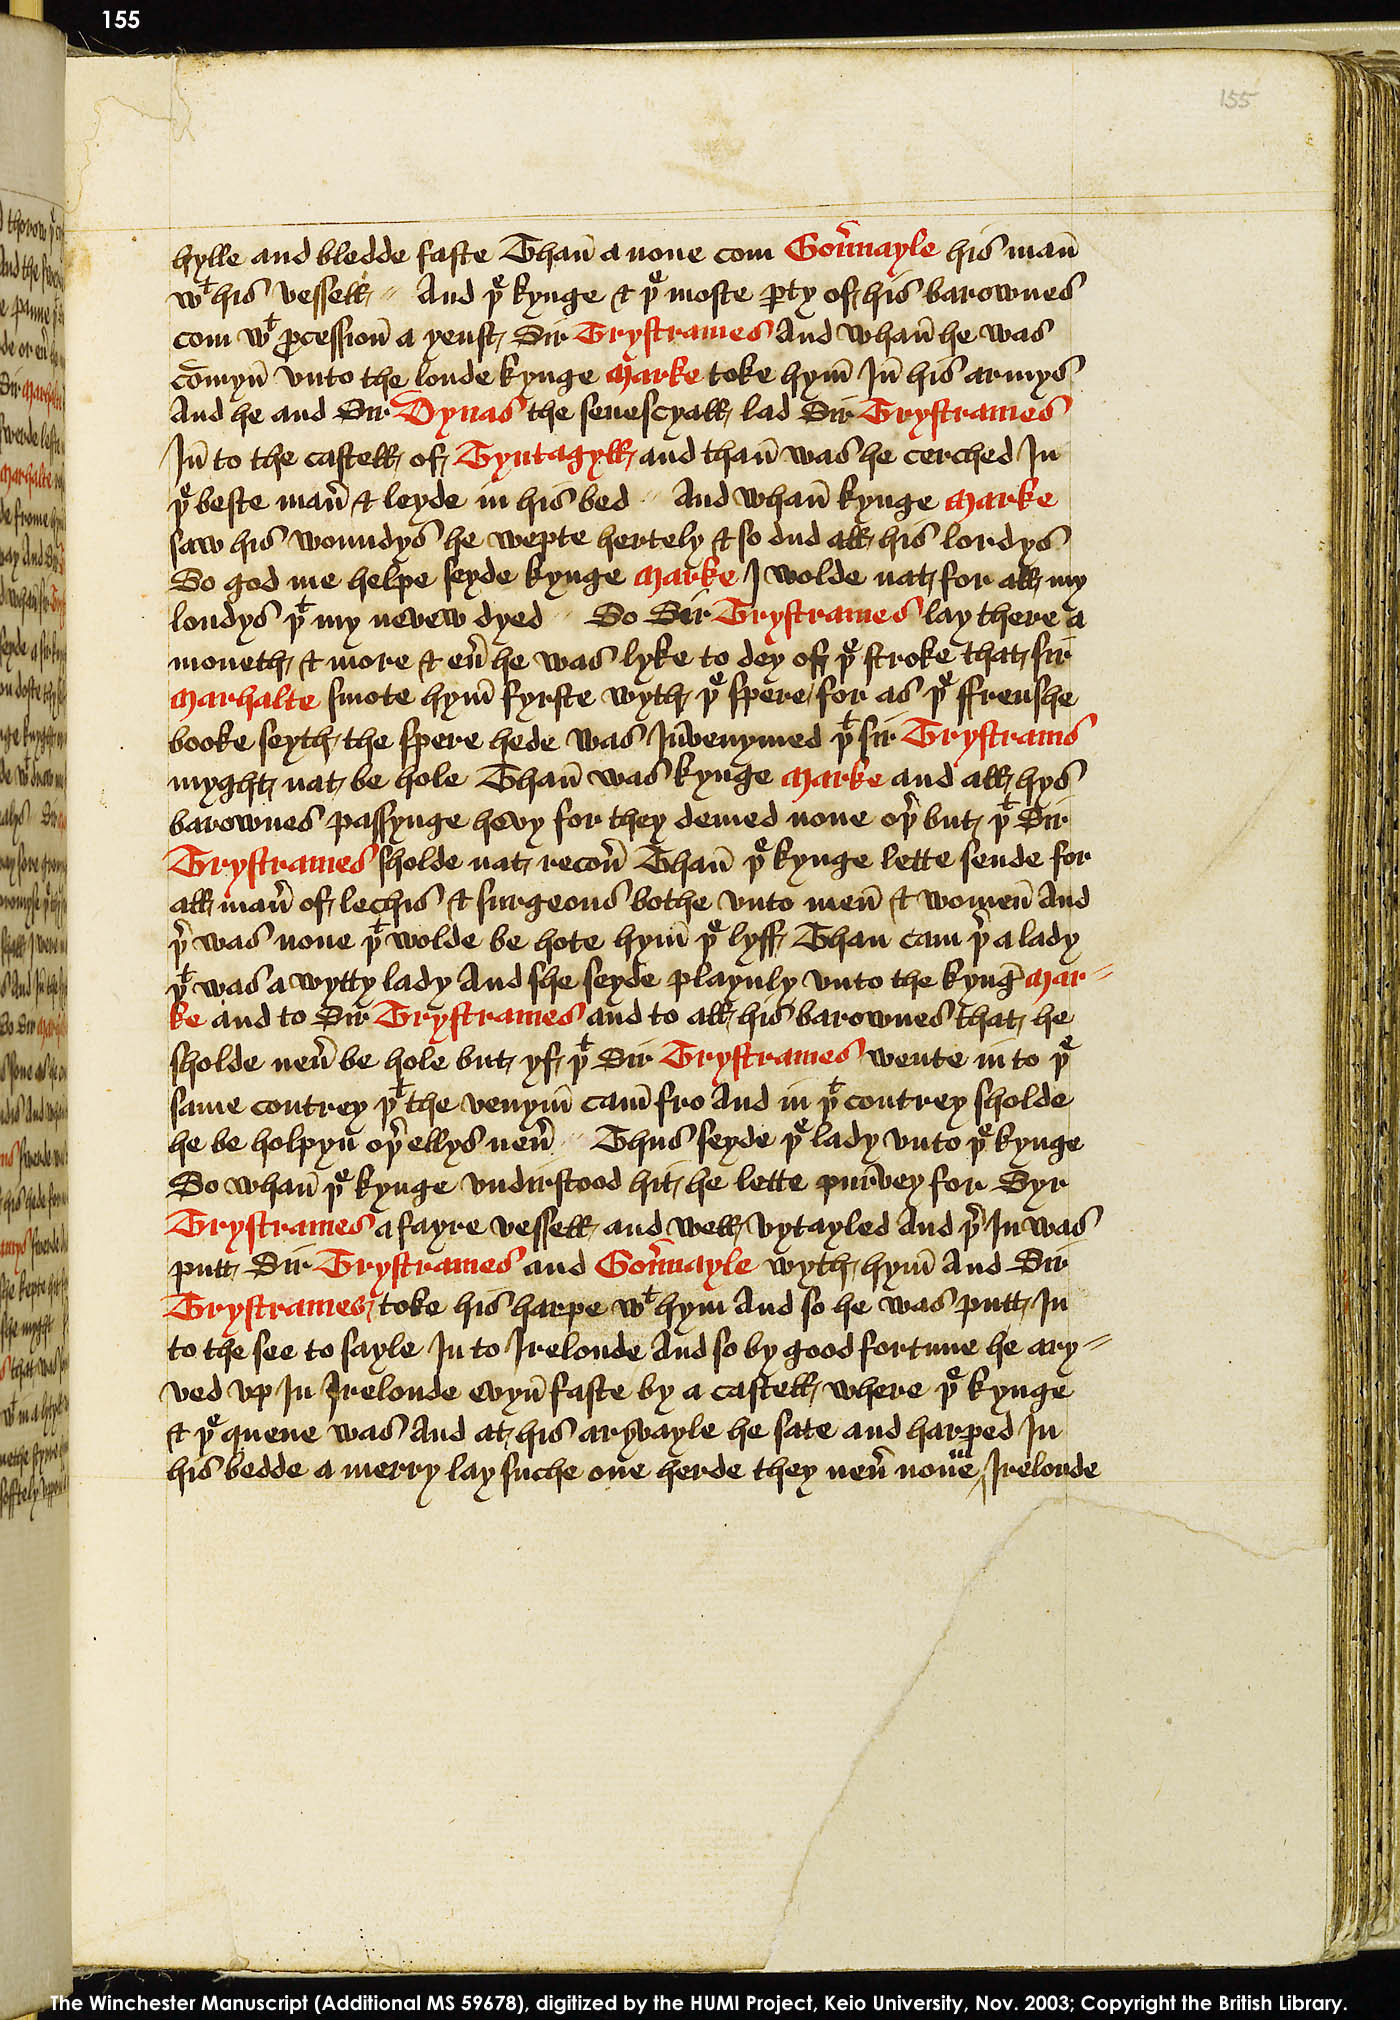 155
155
hylle and bledde faste Thañ a none com Gou̇nayle his mañ
wᵗ his vessell And þᵉ kynge & þᵉ moste ꝑty of his barownes
com wᵗ ꝓcessioñ a yenst Sir Trystrames And whañ he was
com̄yñ vnto the londe kynge Marke toke hym̄ Iñ his armys
And he and Sir Dynas the senescyall lad Sir Trystrames
Iñ to the castell of Tyntagyll and thañ was he cerched In
þᵉ beste man̉ & leyde in his bed And whañ kynge Marke
saw his woundys he wepte hertely & so dud all his lordys
So god me helpe seyde kynge Marke I wolde nat for all my
londys þᵗ my nevew dyed So Sir Trystrames lay there a
moneth & more & eủ he was lyke to dey of þᵉ stroke that sir
Marhalte smote hym̄ fyrste wyth þᵉ spere for as þᵉ ffrenshe
booke seyth the spere hede was Iñvenymed þᵗ sir Trystrams
myght nat be hole Thañ was kynge Marke and all hys
barownes passynge hevy for they demed none oþ̉ but þᵗ Sir
Trystrames sholde nat recoủ Thañ þᵉ kynge lette sende for
all man̉ of lechis & surgeons bothe vnto meñ & womeñ And
þ̉ was none þᵗ wolde be hote hym̄ þᵉ lyff Than cam þ̉ a lady
þᵗ was a wytty lady And she seyde playnly vnto the kyng̉ Mar=
ke and to Sir Trystrames and to all his barownes that he
sholde neủ be hole but yf þᵗ Sir Trystrames wente in to þᵉ
same contrey þᵗ the venym̄ cam̄ fro And in þᵗ contrey sholde
he be holpyn oþ̉ ellys neủ Thus seyde þᵉ lady vnto þᵉ kynge
So whañ þᵉ kynge vndirstood hit he lette purvey for Syr
Trystrames a fayre vessell and well vytayled And þ̉ In was
putt Sir Trystrames and Goủnayle wyth hym̄ And Sir
Trystrames toke his harpe wᵗ hym And so he was putt In
to the see to sayle In to Irelonde And so by good fortune he ary=
ved vp In Irelonde evyñ faste by a castell where þᵉ kynge
& þᵉ quene was And at his aryvayle he sate and harped In
his bedde a merry lay suche one herde they neủ none Irelonde
The Winchester Manuscript (Additional MS 59678), digitized by the HUMI Project, Keio University, Nov. 2003; Copyright the British Library.